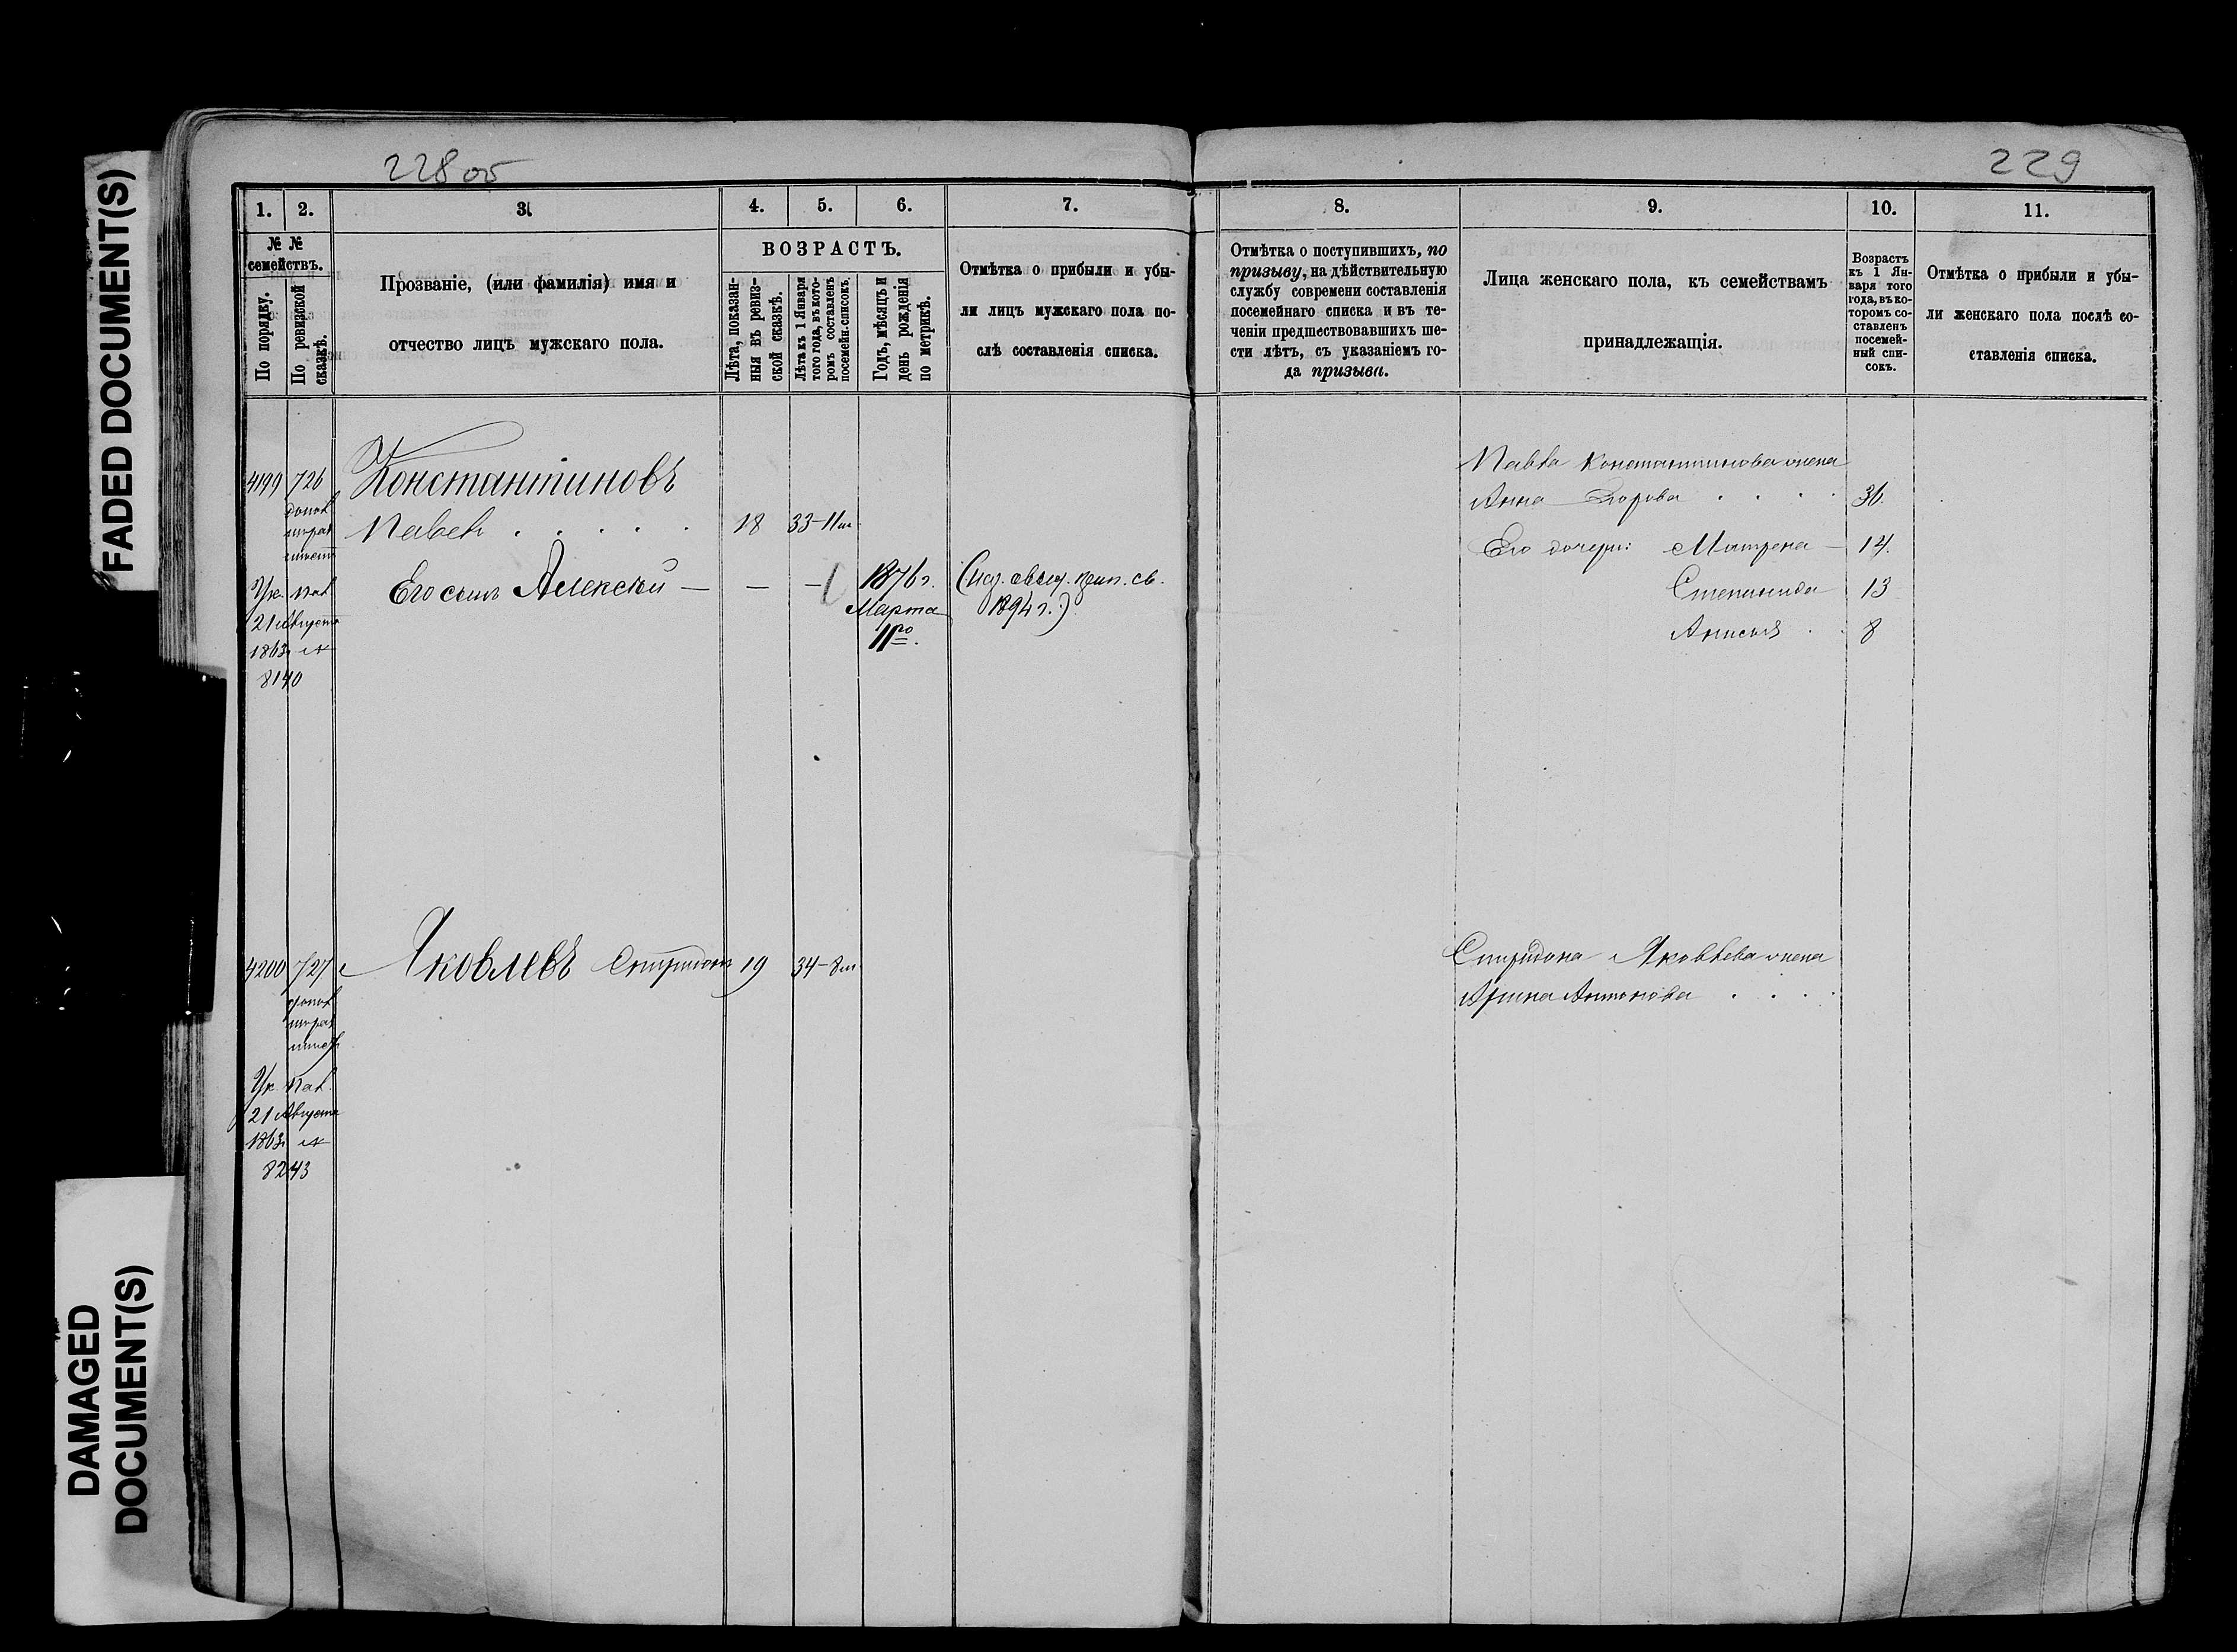 FADED DOCUMENT(S)
DAMAGED
DOCUMENT(S)
228 об
1.
2.
3.
4.
5.
6.
7.
№ №
семействъ.
По порядку.
По ревизской
сказкѣ.
Прозваніе, (или фамилія) имя и
отчество лицъ мужскаго пола.
ВОЗРАСТЪ.
Лѣта, показан-
ныя въ ревиз-
ской сказкѣ.
Лѣта къ 1 Января
того года, въ кото-
ромъ составленъ
посемейн. списокъ.
Годъ, мѣсяцъ и
день рожденія
по метрикѣ.
Отмѣтка о прибыли и убы-
ли лицъ мужскаго пола по-
слѣ составленія списка.
4199 726
Константиновъ
Павел 18 33-11 м
Его сынъ Алексѣй — — —
1876 г.
Марта
11го.
1894 г.)
Ук. Пал.
21 Августа
1863 г. №
8140
4200 727
Яковлевъ Спиридонъ 19 34-8 м
Ук. Пал.
21 Августа
1863 г. №
8243
229
8.
9.
10.
11.
Отмѣтка о поступившихъ, по
призыву, на дѣйствительную
службу современи составленія
посемейнаго списка и въ те-
ченіи предшествовавшихъ ше-
сти лѣтъ, съ указаніемъ го-
да призыва.
Лица женскаго пола, къ семействамъ
принадлежащія.
Возрастъ
къ 1 Ян-
варя того
года, въ ко-
торомъ со-
ставленъ
посемей-
ный спи-
сокъ.
Отмѣтка о прибыли и убы-
ли женскаго пола послѣ со-
ставленія списка.
Павла Константинова жена
Анна Егорова . . . . 36
Его дочери: Матрена — 14.
Степанида 13
Анисья . . 8
Спиридона Яковлева жена
Арина Антонова . . . .